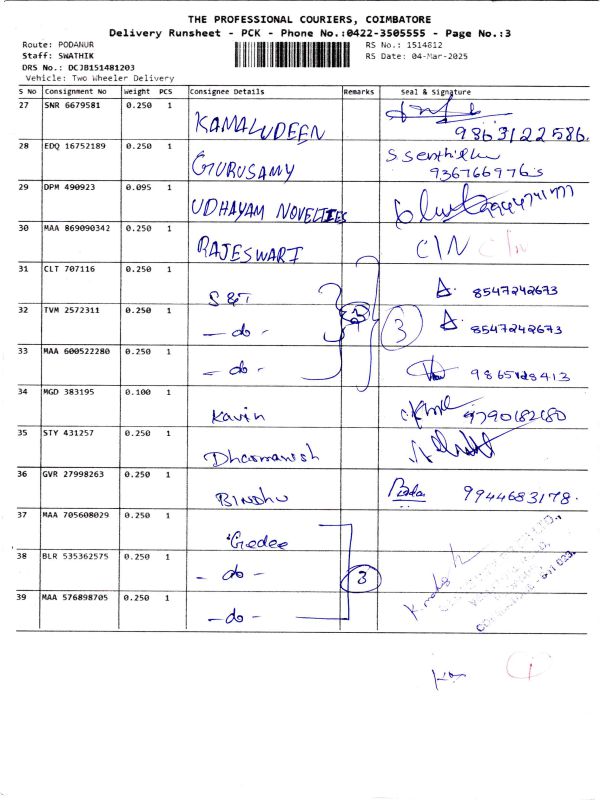 THE PROFESSIONAL COURIERS, COIMBATORE
Delivery Runsheet - PCK - Phone No.:0422-3505555 - Page No.:3
Route: PODANUR RS No.: 1514812
Staff: SWATHIK RS Date: 04-Mar-2025
DRS No.: DCJB151481203
Vehicle: Two Wheeler Delivery
S No Consignment No Weight PCS Consignee Details Remarks Seal & Signature
27 SNR 6679581 0.250 1 KAMALUDEEN 9863122586.
28 EDQ 16752189 0.250 1 GURUSAMY
29 DPM 490923 0.095 1 UDHAYAM NOVELTIES
30 MAA 869090342 0.250 1 RAJESWARI C/N C/N
31 CLT 707116 0.250 1 S&T 8547242673
32 TVM 2572311 0.250 1 - do - 3 8547242673
33 MAA 600522280 0.250 1 - do -
34 MGD 383195 0.100 1 Kavin
35 STY 431257 0.250 1 Dharmanish
36 GVR 27998263 0.250 1 BINDHU 9944683178.
37 MAA 705608029 0.250 1 Gedee
38 BLR 535362575 0.250 1 - do - 3
39 MAA 576898705 0.250 1 - do -